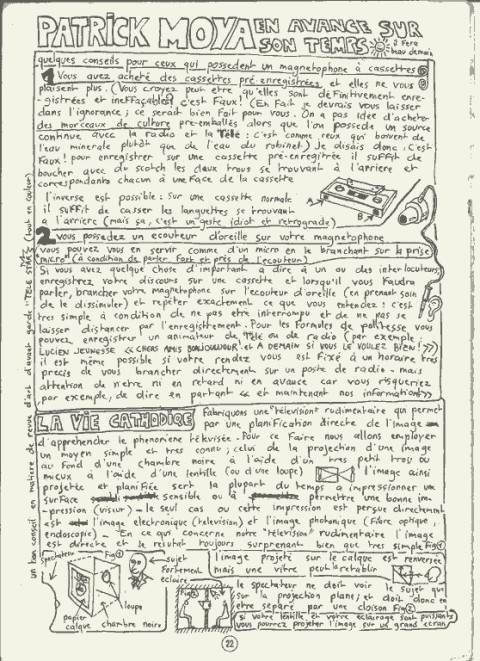 PATRICK MOYA EN AVANCE SUR
SON TEMPS
il fera
beau demain
quelques conseils pour ceux qui possedent un magnetophone à cassettes
1 Vous avez acheté des cassettes pré-enregistrées et elles ne vous
plaisent plus. (Vous croyez peut être qu'elles sont définitivement enre-
-gistrées et ineffaçables) c'est Faux! (En Fait je devrais vous laisser
dans l'ignorance; ce serait bien Fait pour vous. On a pas idée d'acheter
des morceaux de culture pré-emballés alors que l'on possede un source
continue avec la radio et la Télé: c'est comme ceux qui boivent de
l'eau minerale plutôt que de l'eau du robinet) Je disais donc, c'est
Faux! pour enregistrer sur une cassette pre-enregitrée il suffit de
boucher avec du scotch les deux trous se trouvant à l'arriere et
correspondants chacun à une face de la cassette
l'inverse est possible: sur une cassette normale
il suffit de casser les languettes se trouvant
à l'arriere (mais ça, c'est un geste idiot et retrograde)
A
B
2 vous possedez un ecouteur d'oreille sur votre magnetophone
vous pouvez vous en servir comme d'un micro en le branchant sur la prise
"micro" (à condition de parler Fort et près de l'ecouteur)
Si vous avez quelque chose d'important a dire à un ou des interlocuteurs,
enregistrez votre discours sur une cassette et lorsqu'il vous Faudra
parler, brancher votre magnetophone sur l'ecouteur d'oreille (en prenant soin
de le dissimuler) et repéter exactement ce que vous entendez: c'est
tres simple à condition de ne pas être interrompu et de ne pas se
laisser distancer par l'enregistrement. Pour les Formules de politesse vous
pouvez enregistrer un animateur de Télé ou de radio (par exemple.
LUCIEN JEUNESSE «CHERS AMIS BONJOUOUOUR et A DEMAIN SI VOUS LE VOULEZ BIEN!»)
il est même possible si votre rendez vous est Fixé à un horaire très
precis de vous brancher directement sur un poste de radio - mais
attention de n'etre ni en retard ni en avance car vous risqueriez
par exemple, de dire en partant « et maintenant nos informations»
un bon conseil en matière de revue d'art d'avant garde: TELE STAR (tout en couleur)
LA VIE CATHODIQE
Fabriquons une "télévision" rudimentaire qui permet
par une planification directe de l'image
d'apprehender le phenomene télévisée. Pour ce Faire nous allons employer
un moyen simple et tres connu; celui de la projection d'une image
au fond d'une chambre noire à l'aide d'un tres petit trou ou
mieux à l'aide d'une lentille (ou d'une loupe) l'image ainsi
projetée et planifiée sert la plupart du temps a impressionner une
surface sensible ou à permettre une bonne im-
-pression (viseur) - le seul cas ou cette impression est perçue directement
est l'image electronique (television) et l'image photonique (Fibre optique,
endoscopie) - En ce qui concerne notre "television" rudimentaire l'image
est directe et le resultat toujours surprenant bien que tres simple Fig 1
spectateur
Fig 1
sujet
fortement
eclaire
loupe
papier
calque
chambre noire
l'image projeté sur le calque est renversée
mais une vitre peut la retablir
Fig 2
le spectateur ne doit voir le sujet que
sur la projection plane; et doit donc en
etre separé par une cloison Fig 2
si votre lentille et votre eclairage sont puissants
vous pourrez projeter l'image sur un grand ecran
22